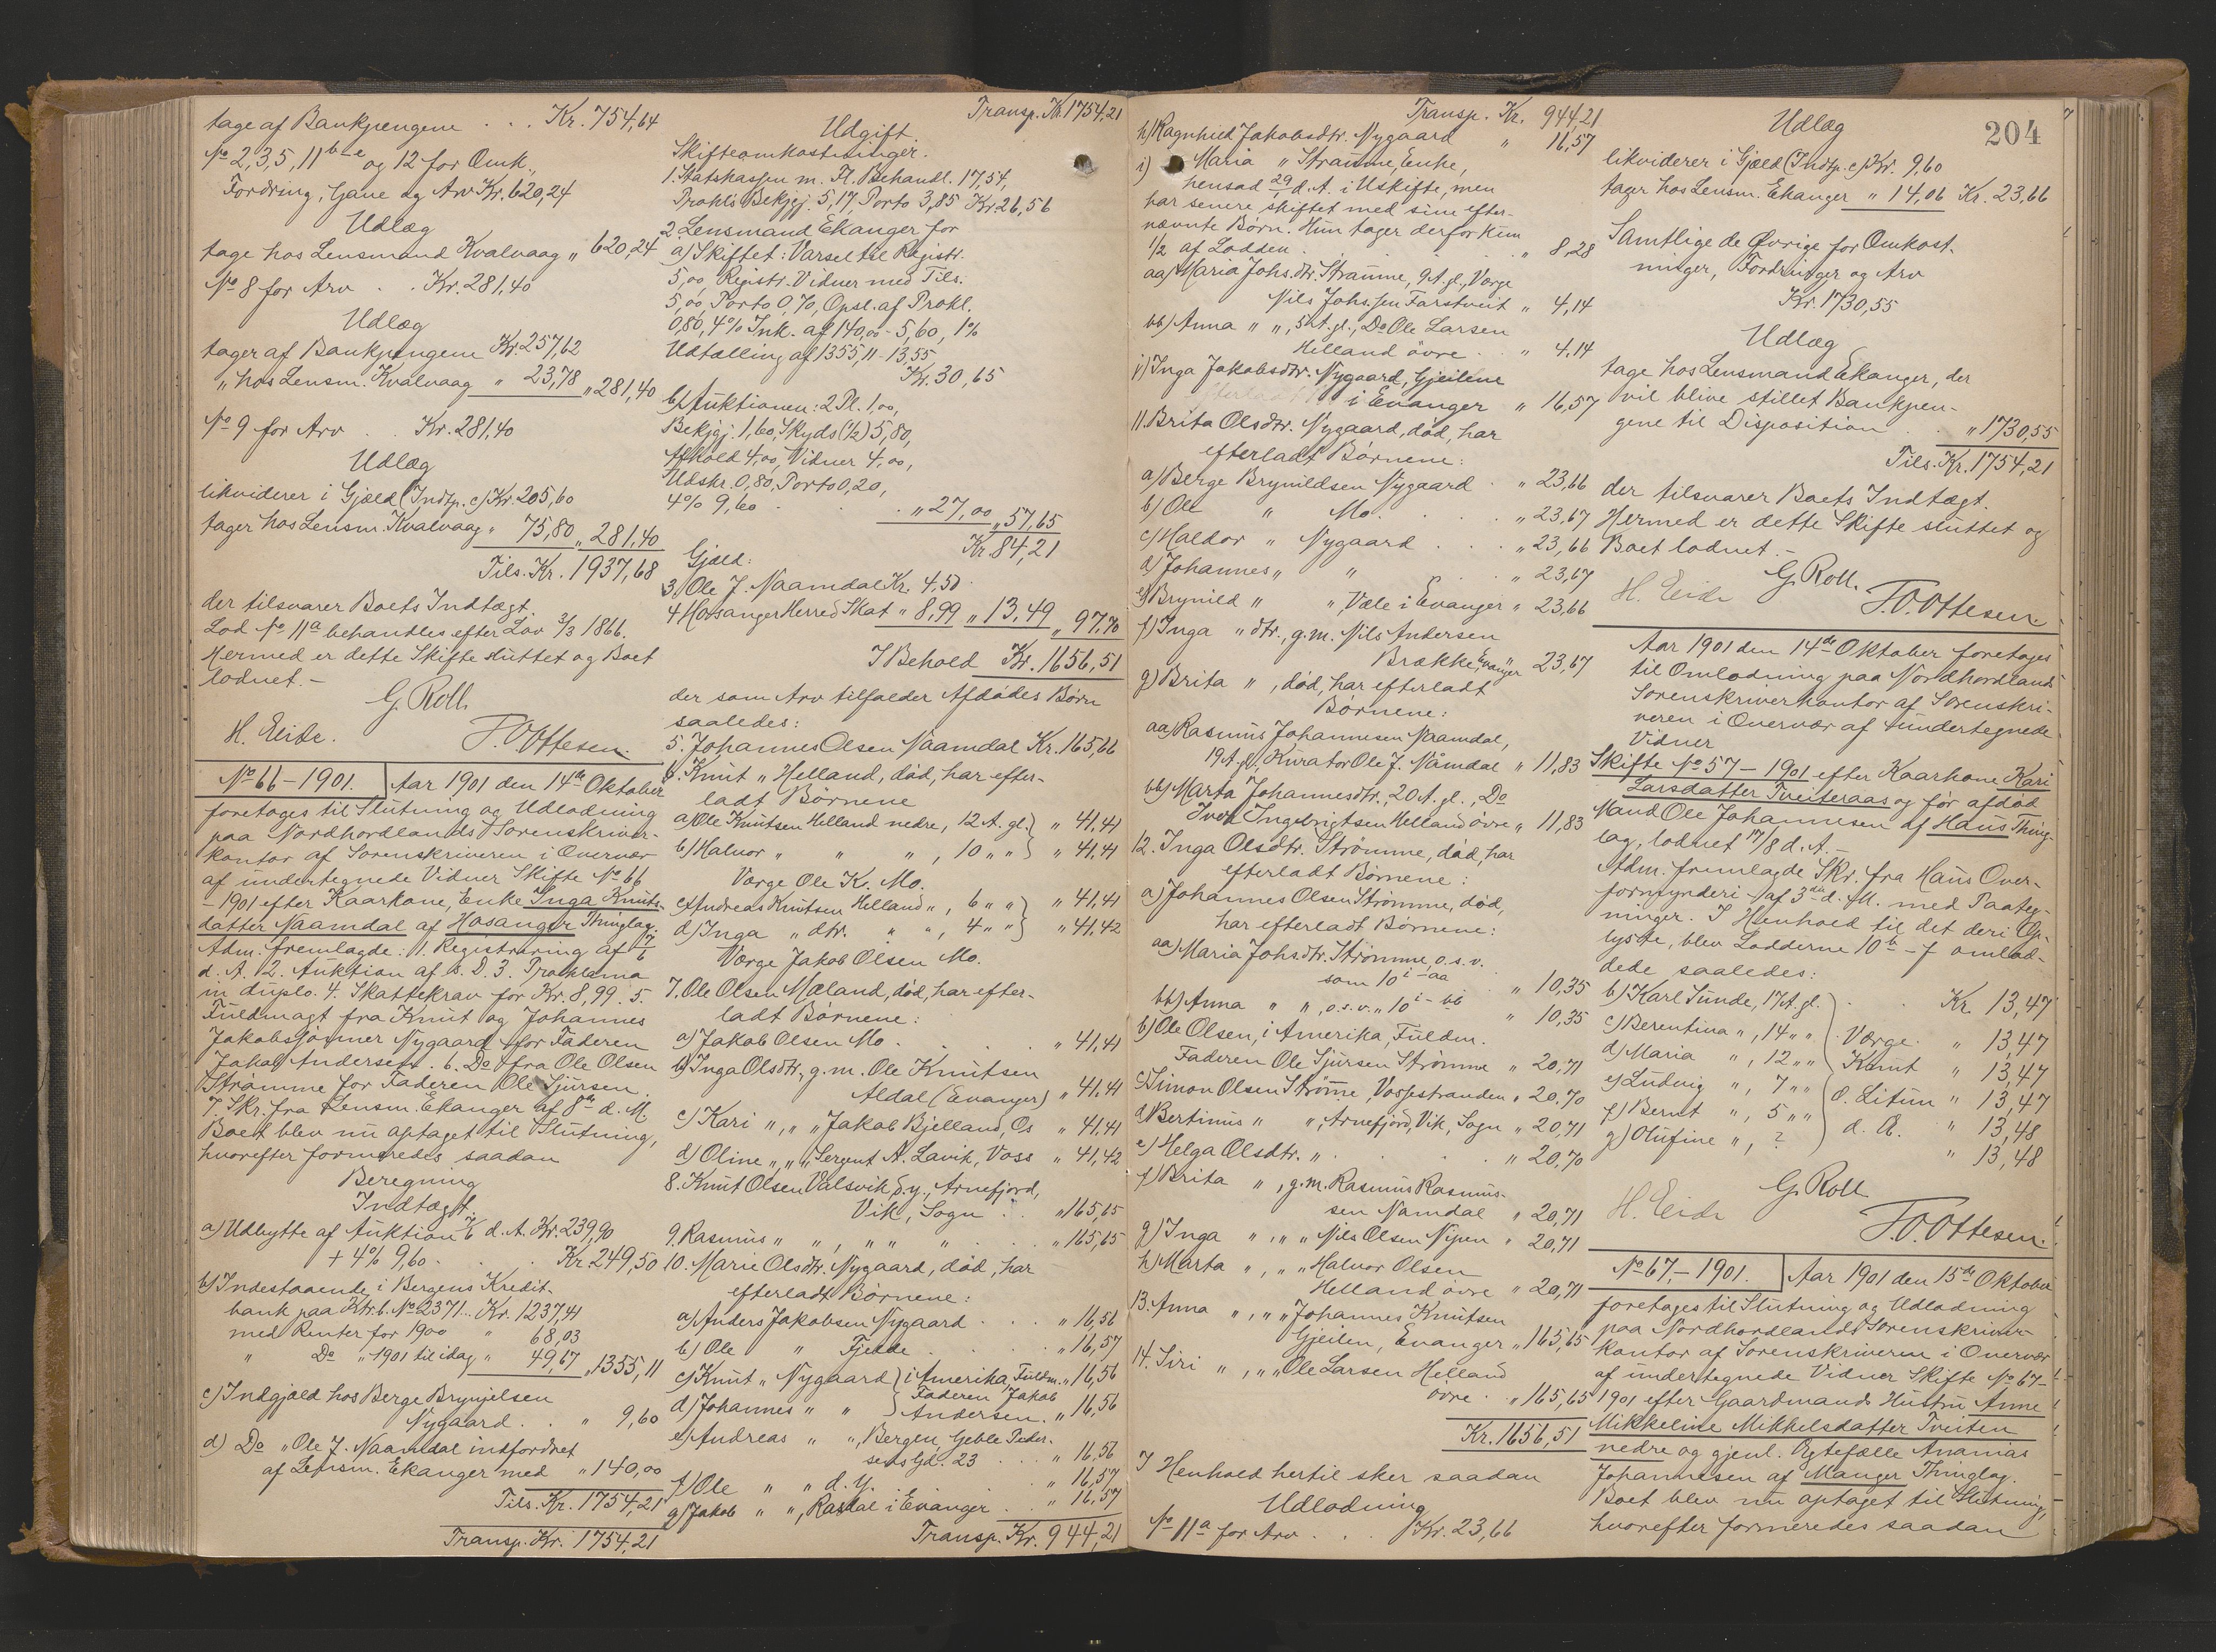 tage af Bankpengene . . . Kr. 754,64
No 2, 3, 5, 11 b-e og 12 for Omk.,
Fordring, Gave og Arv Kr. 620,24
Udlæg
tage hos Lensmand Kvalvaag " 620,24
No 8 for Arv . . Kr. 281,40
Udlæg
tager af Bankpengene Kr. 257,62
" hos Lensm. Kvalvaag " 23,78 " 281,40
No 9 for Arv . . Kr. 281,40
Udlæg
likviderer i Gjæld (Indtp. c) Kr. 205,60
tager hos Lensm. Kvalvaag " 75,80 " 281,40
Tils. Kr. 1937,68
der tilsvarer Boets Indtægt.
Lod No 11a behandles efter Lov 3/3 1866.
Hermed er dette Skifte sluttet og Boet
lodnet. -
G. Roll
H. Eide. F. O. Ottesen.
No 66 - 1901. Aar 1901 den 14de Oktober
foretages til Slutning og Udlodning
paa Nordhordlands Sorenskriver-
kontor af Sorenskriveren i Overvær
af undertegnede Vidner Skifte No 66
- 1901 efter Kaarkone, Enke Inga Knuts-
datter Naamdal af Hosanger Thinglag.
Adm. fremlagde: 1. Registrering af 7/6
d. A. 2. Auktion af s. D. 3. Proklama
in duplo. 4. Skattekrav for Kr. 8,99. 5.
Fuldmagt fra Knut og Johannes
Jakobssønner Nygaard for Faderen
Jakob Andersen. 6. Do fra Ole Olsen
Strømme for Faderen Ole Sjursen.
7. Skr. fra Lensm. Ekanger af 8de d. M.
Boet blev nu optaget til Slutning,
hvorefter formeredes saadan
Beregning
Indtægt.
a) Udbytte af Auktion 7/6 d. A. Kr. 239,90
+ 4% 9,60 . . . Kr. 249,50
b) Indestaaende i Bergens Kredit-
bank paa Ktr. b. No 2371 .. Kr. 1237,41
med Renter for 1900 " 68,03
" Do " 1901 til idag " 49,67 " 1355,11
c) Indgjæld hos Berge Brynjelsen
Nygaard . . " 9,60
d) Do " Ole J. Naamdal indfordret
af Lensm. Ekanger med " 140,00
Tils. Kr. 1754,21
Transp. Kr. 1754,21
Transp. Kr. 1754,21
Udgift.
Skifteomkostninger.
1. Statskassen m. Fl. Behandl. 17,54,
Prokls Bekjgj. 5,17, Porto 3,85 Kr. 26,56
2. Lensmand Ekanger for
a) Skiftet: Varsel til Registr.
5,00, Registr. Vidner med Tils.
5,00, Porto 0,70, Opsl. af Prokl.
0,80, 4% Ink. af 140,00 - 5,60, 1%
Udtælling af 1355,11 - 13,55
Kr. 30,65
b) Auktionen: 2 Pl. 1,00,
Bekjgj. 1,60, Skyds (1/2) 5,80,
Afhold 4,00, Vidner 4,00,
Udskr. 0,80, Porto 0,20,
4% 9,60 . . . " 27,00 " 57,65
Kr. 84,21
Gjæld:
3) Ole J. Naamdal Kr. 4,50
4 Hosanger Herred Skat " 8,99 " 13,49 " 97,70
I Behold Kr. 1656,51
der som Arv tilfalder Afdødes Børn
saaledes:
5. Johannes Olsen Naamdal Kr. 165,66
6. Knut " Helland, død, har efter-
ladt Børnene
a) Ole Knutsen Helland nedre, 12 A. gl. " 41,41
b) Halvor " " " , 10 " " " 41,41
Værge Ole K. Mo.
c) Andreas Knutsen Helland " , 6 " " " 41,41
d) Inga " dtr. " " , 4 " " " 41,42
Værge Jakob Olsen Mo.
7. Ole Olsen Mæland, død, har efter-
ladt Børnene:
a) Jakob Olsen Mo . . . . " 41,41
b) Inga Olsdtr., g. m. Ole Knutsen
Aldal (Evanger) " 41,41
c) Kari " , " " Jakob Bjelland, Os " 41,41
d) Oline " , " " Sergent A. Lavik, Voss " 41,42
8. Knut Olsen Valsvik, d. y., Arnefjord,
Vik, Sogn . . " 165,65
9. Rasmus " " , " " " . . " 165,65
10. Marie Olsdtr. Nygaard, død, har
efterladt Børnene:
a) Anders Jakobsen Nygaard . . . " 16,56
b) Ole " Fjelde . . . " 16,57
c) Knut " Nygaard i Amerika, Fuldm. " 16,56
d) Johannes " " Faderen Jakob Andersen. " 16,56
e) Andreas " " , Bergen, Geble Peder-
sens Gd. 23 . . . " 16,56
f) Ole " " d. Y. . . " 16,57
g) Jakob " " , Rasdal i Evanger . . " 16,57
Transp. Kr. 944,21
Transp. Kr. 944,21
h) Ragnhild Jakobsdtr. Nygaard " 16,57
i) Maria " Stramme, Enke,
hensad 29 d. A. i Uskifte, men
har senere skiftet med sine efter-
nævnte Børn. Hun tager derfor kun
1/2 af Lodden . . . . " 8,28
aa) Maria Johs. dtr. Stramme, 9 A. gl., Værge
Nils Johs. sen Farstveit " 4,14
bb) Anna " " , 5 A. gl., Do Ole Larsen
Helland øvre . . " 4,14
j) Inga Jakobsdtr. Nygaard, Gjeilene
i Evanger " 16,57
11. Brita Olsdtr. Nygaard, død, har
efterladt Børnene:
a) Berge Brynildsen Nygaard . " 23,66
b) Ole " Mo . . . " 23,67
c) Haldor " Nygaard . . . " 23,66
d) Johannes " " . . " 23,67
e) Brynild " " , Væle i Evanger " 23,66
f) Inga " dtr., g. m. Nils Andersen
Brække, Evanger " 23,67
g) Brita " , død, har efterladt
Børnene:
aa) Rasmus Johannesen Naamdal,
19 A. gl., Kurator Ole J. Nåmdal " 11,83
bb) Marta Johannesdtr., 20 A. gl., Do
Iver Ingebrigtsen Helland øvre " 11,83
12. Inga Olsdtr. Strømme, død, har
efterladt Børnene:
a) Johannes Olsen Strømme, død,
har efterladt Børnene:
aa) Maria Johsdtr. Strømme o. s. v.
som 10 i - aa . " 10,35
bb) Anna " " , o. s. v. " 10 i - bb " 10,35
b) Ole Olsen, i Amerika, Fuldm.
Faderen Ole Sjursen Strømme " 20,71
c) Simon Olsen Strøme, Vossestranden " 20,70
d) Bertinus " " , Arnefjord, Vik, Sogn " 20,71
e) Helga Olsdtr. " . . . . " 20,70
f) Brita " , g. m. Rasmus Rasmus-
sen Namdal " 20,71
g) Inga " , " " Nils Olsen Nipen " 20,71
h) Marta " , " " Halvor Olsen
Helland øvre " 20,71
13. Anna " , " " Johannes Knutsen
Gjeilen, Evanger " 165,65
14. Siri " , " " Ole Larsen Helland
øvre . . " 165,65
Kr. 1656,51
I Henhold hertil sker saadan
Udlodning
No 11a for Arv . . . Kr. 23,66
204
Udlæg
likviderer i Gjæld (Indtp. c) Kr. 9,60
tager hos Lensm. Ekanger " 14,06 Kr. 23,66
Samtlige de Øvrige for Omkost-
ninger, Fordringer og Arv
Kr. 1730,55
Udlæg
tage hos Lensmand Ekanger, der
vil blive stillet Bankpen-
gene til Disposition . . " 1730,55
Tils. Kr. 1754,21
der tilsvarer Boets Indtægt.
Hermed er dette Skifte sluttet og
Boet lodnet. -
G. Roll.
H. Eide F. O. Ottesen.
Aar 1901 den 14de Oktober foretages
til Omlodning paa Nordhordlands
Sorenskriverkontor af Sorenskri-
veren i Overvær af undertegnede
Vidner
Skifte No 57 - 1901 efter Kaarkone Kari
Larsdatter Tveiteraas og før afdød
Mand Ole Johannesen af Haus Thing-
lag, lodnet 17/8 d. A. -
Adm. fremlagde Skr. fra Haus Over-
formynderi af 3die d. M. med Paateg-
ninger. I Henhold til det deri Op-
lyste, blev Lodderne 10 b - f omlod-
dede saaledes:
b) Karl Sunde, 17 A. gl. . Kr. 13,47
c) Berentina " , 14 " " Værge " 13,47
d) Maria " , 12 " " Knut " 13,47
e) Ludvig " , 7 " " O. Litun " 13,47
f) Bernt " , 5 " " d. Æ. " 13,48
g) Olufine " , ? " 13,48
G. Roll
H. Eide F. O. Ottesen.
No 67 - 1901. Aar 1901 den 15de Oktober
foretages til Slutning og Udlodning
paa Nordhordlands Sorenskriver-
kontor af Sorenskriveren i Overvær
af undertegnede Vidner Skifte No 67 -
1901 efter Gaardmands Hustru Anne
Mikkeline Mikkelsdatter Tveiten
nedre og gjenl. Ægtefælle Ananias
Johannesen af Manger Thinglag.
Boet blev nu optaget til Slutning,
hvorefter formeredes saadan